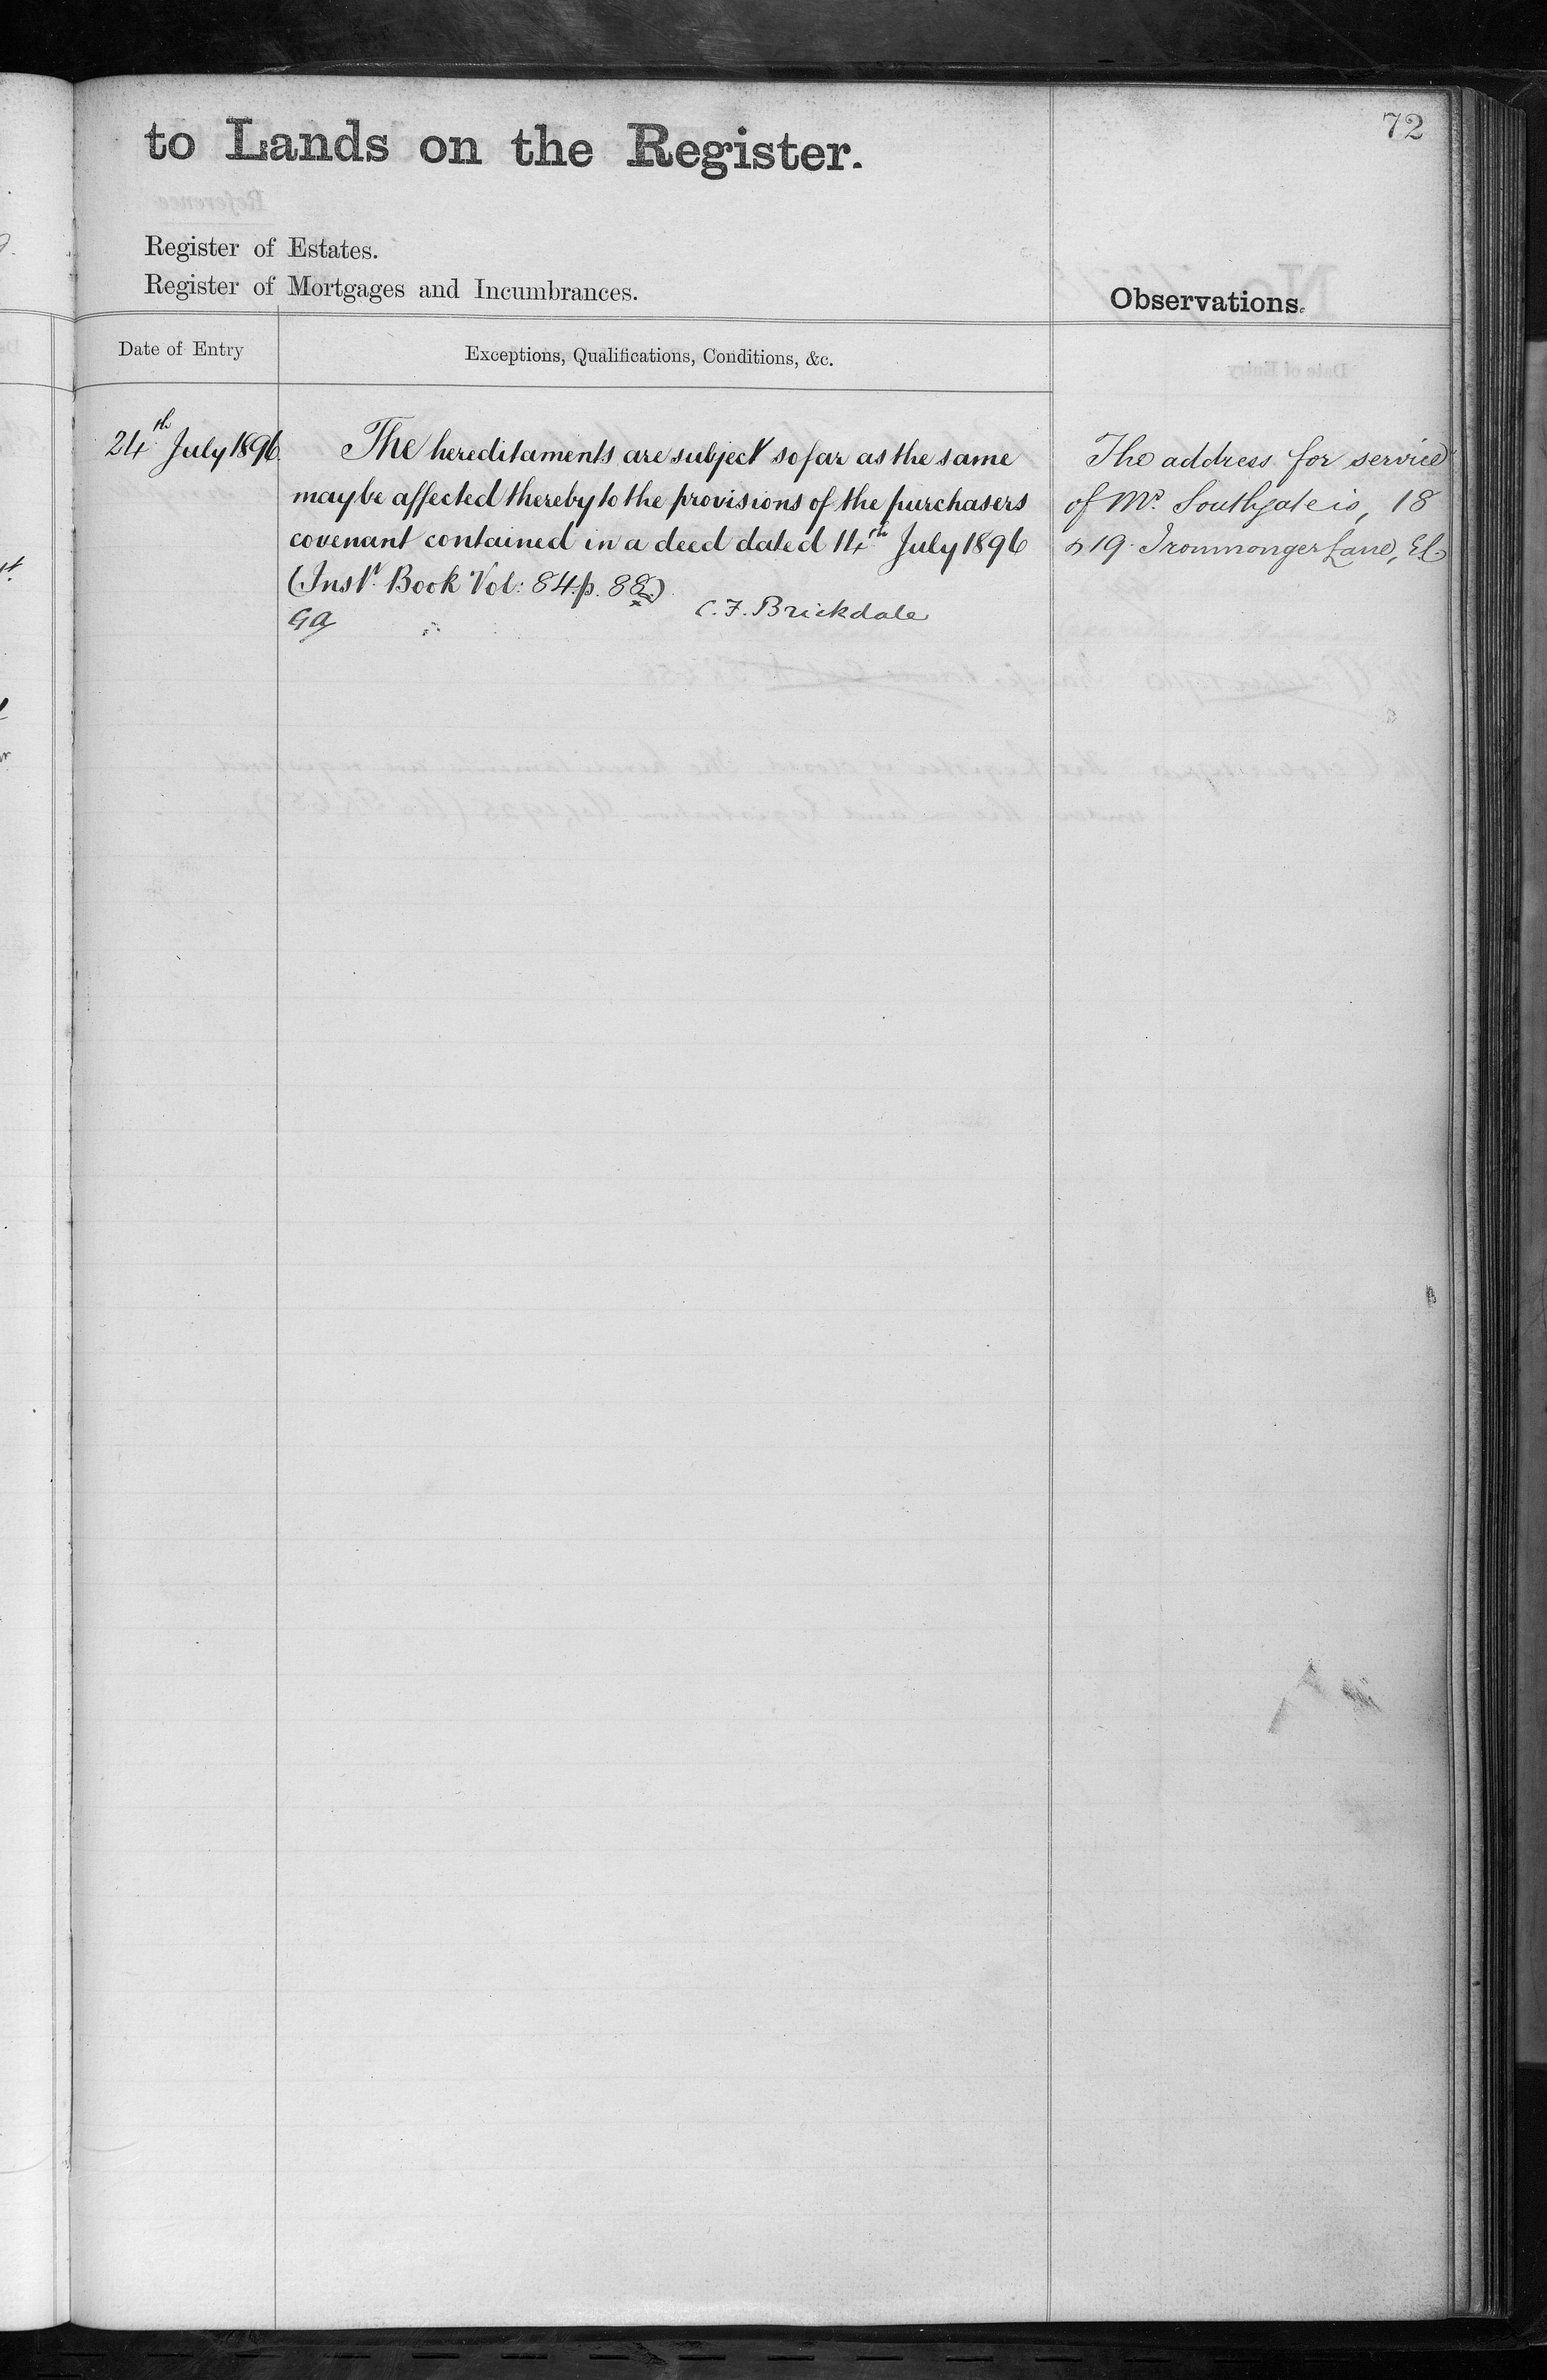 72
to Lands on the Register.
Register of Estates.
Register of Mortgages and Incumbrances.
Observations.
Date of Entry
Exceptions, Qualifications, Conditions, &c.
24th July 1896
The hereditaments are subject so far as the same
may be affected thereby to the provisions of the purchasers
covenant contained in a deed dated 14th July 1896
(Inst. Book Vol: 84. p. 88.)
GA
C. F. Brickdale
The address for service
of Mr. Southgate is, 18
& 19 Ironmonger Lane, EC